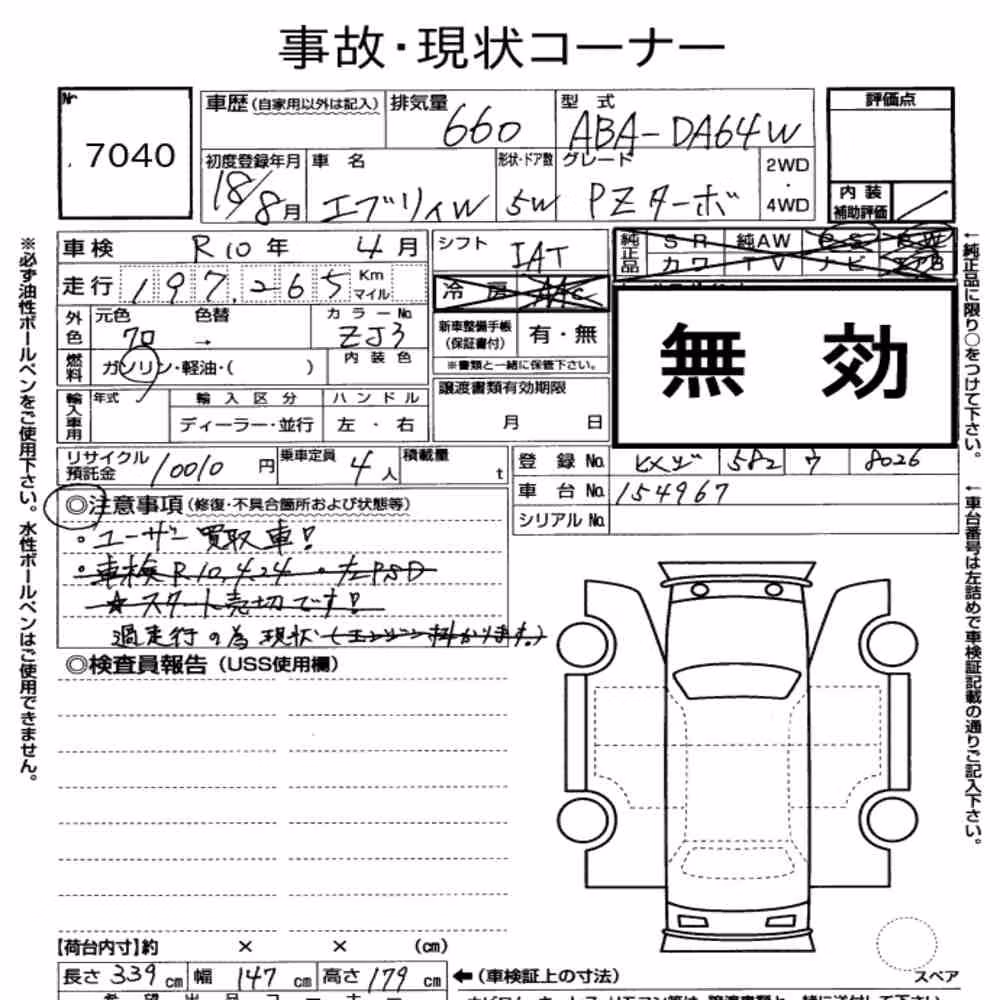 事故・現状コーナー
Nr 7040
車歴(自家用以外は記入) 排気量 660 型式 ABA-DA64W
初度登録年月 18/8月 車名 エブリィW 形状・ドア数 5W グレード PZターボ 2WD・4WD
評価点
内装補助評価
車検 R10年 4月
走行 197,265 Km マイル
外色 元色 70 色替 → カラーNo. ZJ3
燃料 ガソリン・軽油・( ) 内装色
輸入車用 年式 輸入区分 ハンドル
ディーラー・並行 左・右
シフト IAT
冷房 AAC
新車整備手帳(保証書付) 有・無
※書類と一緒に保管下さい。
譲渡書類有効期限
月 日
純正品 SR 純AW PS PW
カワ TV ナビ エアB
無効
リサイクル預託金 10010円 乗車定員 4人 積載量 t
登録No. ヒメジ 582 ウ 8026
車台No. 154967
シリアルNo.
◎注意事項(修復・不具合箇所および状態等)
・ユーザー買取車!
・車検R10.4.24 ・左PSD
★スタート売切です!
過走行の為現状(エンジン掛かります。)
◎検査員報告(USS使用欄)
【荷台内寸】約 × × (cm)
長さ 339cm 幅 147cm 高さ 179cm ←(車検証上の寸法)
スペア
※必ず油性ボールペンをご使用下さい。水性ボールペンはご使用できません。
←純正品に限り○をつけて下さい。
←車台番号は左詰めで車検証記載の通りご記入下さい。